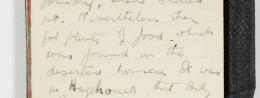 not. Nevertheless they
got plenty of food which
was found in the
deserted houses. It was
in Hazebrouck that Billy